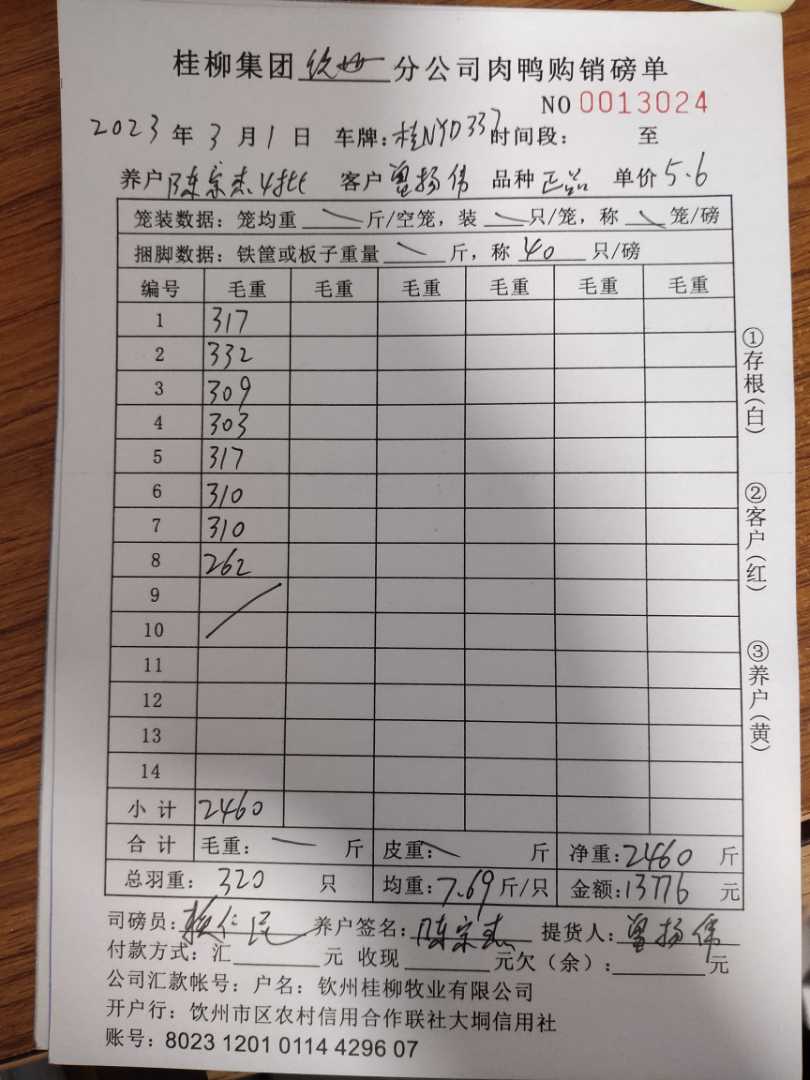 桂柳集团钦州分公司肉鸭购销磅单
NO 0013024
2023年3月1日 车牌:桂NYD337 时间段: 至
养户 陈宗杰4批 客户 曾扬伟 品种 正品 单价 5.6
笼装数据: 笼均重 斤/空笼, 装 只/笼, 称 笼/磅
捆脚数据: 铁筐或板子重量 斤, 称 40 只/磅
编号 毛重 毛重 毛重 毛重 毛重 毛重
1 317
2 332
3 309
4 303
5 317
6 310
7 310
8 262
9
10
11
12
13
14
小计 2460
合计 毛重: 斤 皮重: 斤 净重:2460 斤
总羽重: 320 只 均重:7.69 斤/只 金额:13776 元
司磅员: 仁民 养户签名: 陈宗杰 提货人: 曾扬伟
付款方式: 汇 元 收现 元欠(余): 元
公司汇款帐号: 户名: 钦州桂柳牧业有限公司
开户行: 钦州市区农村信用合作联社大垌信用社
账号: 8023 1201 0114 4296 07
①存根(白)
②客户(红)
③养户(黄)